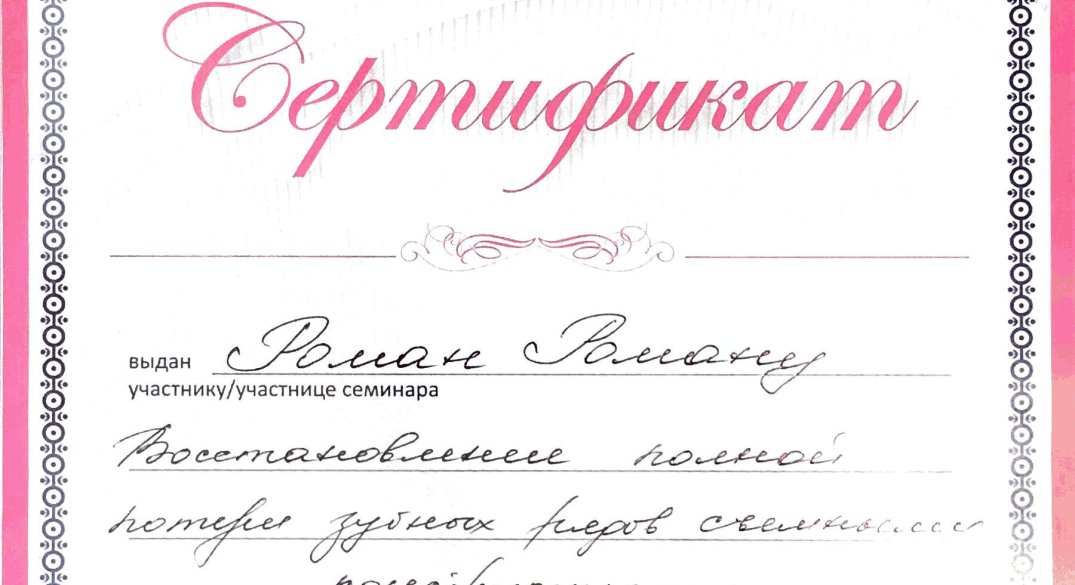 Сертификат
выдан Роман Роману
участнику/участнице семинара
Восстановление полной
потери зубных рядов съемными